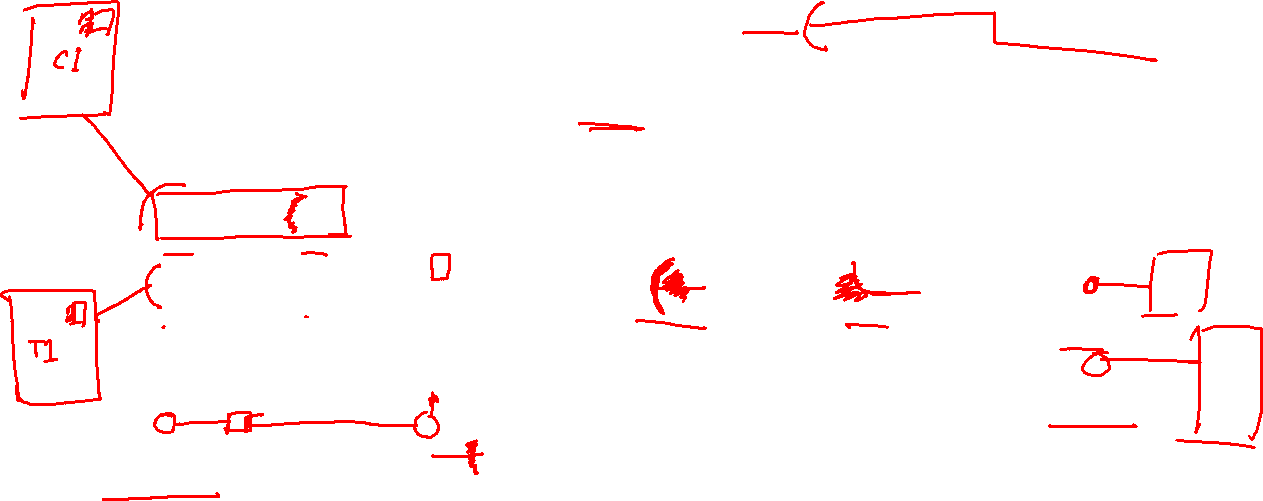 C1
T1